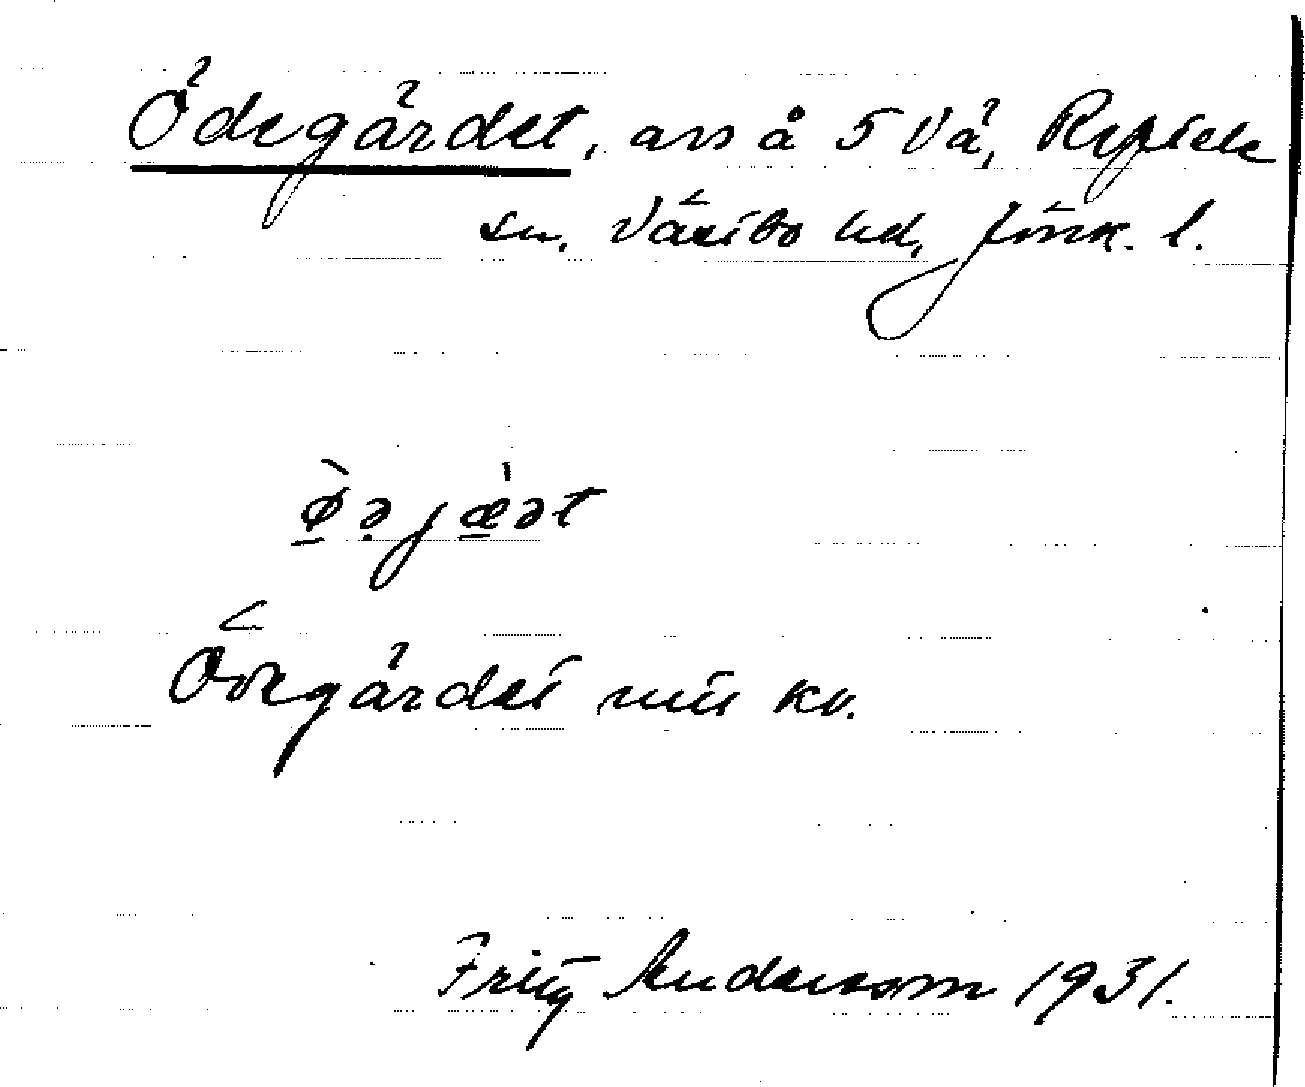 Ödegärdet, avs å 5 Vå, Reftele
sn, Västbo hd, Jönk. l.
ø̀ə jæ̀ət
Ödegärdet mtr kv.
Fritz Andersson 1931.